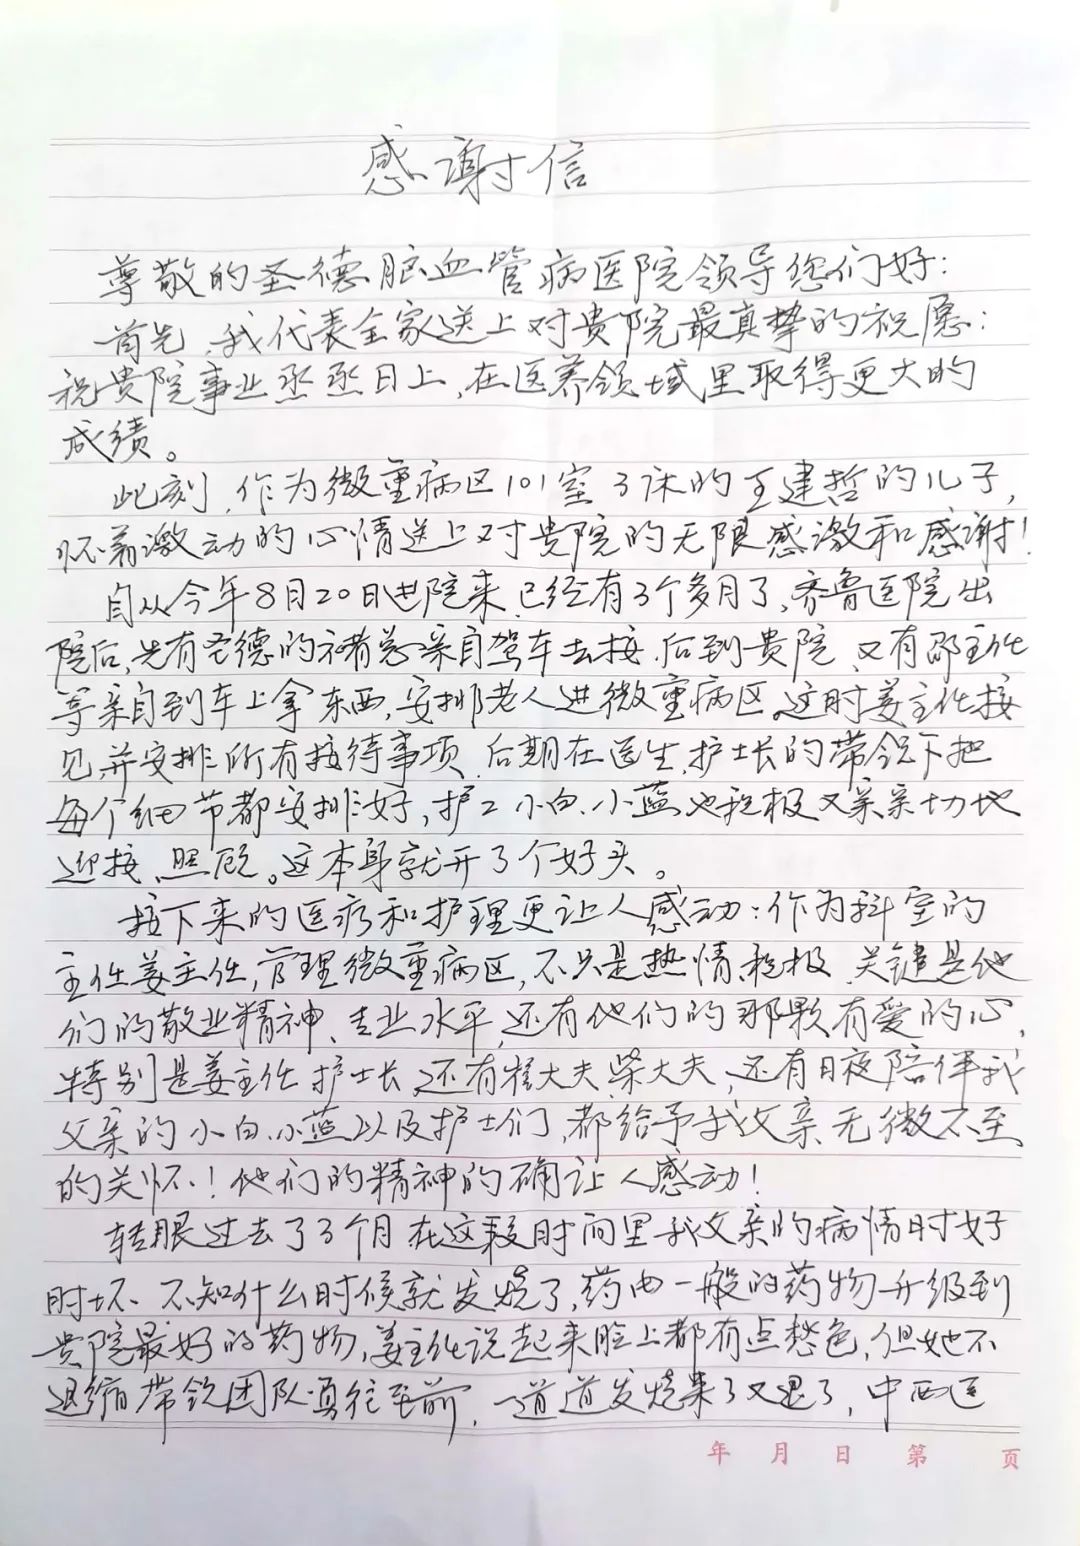 感谢信
尊敬的圣德脑血管病医院领导您们好：
首先，我代表全家送上对贵院最真挚的祝愿：
祝贵院事业蒸蒸日上，在医养领域里取得更大的
成绩。
此刻，作为微重病区101室3床的王建哲的儿子，
怀着激动的心情送上对贵院的无限感激和感谢！
自从今年8月20日进院来，已经有3个多月了，齐鲁医院出
院后，先有圣德的褚总亲自驾车去接，后到贵院，又有邵主任
等亲自到车上拿东西，安排老人进微重病区。这时姜主任接
见并安排所有接待事项，后期在医生、护士长的带领下把
每个细节都安排好，护工小白、小蓝也积极又亲亲切地
迎接、照顾。这本身就开了个好头。
接下来的医疗和护理更让人感动：作为科室的
主任姜主任，管理微重病区，不只是热情、积极，关键是他
们的敬业精神、专业水平，还有他们的那颗有爱的心，
特别是姜主任、护士长，还有崔大夫、柴大夫，还有日夜陪伴我
父亲的小白、小蓝以及护士们，都给予我父亲无微不至
的关怀！他们的精神的确让人感动！
转眼过去了3个月，在这段时间里我父亲的病情时好
时坏，不知什么时候就发烧了，药由一般的药物升级到
贵院最好的药物，姜主任说起来脸上都有点愁色，但她不
退缩，带领团队勇往至前，一道道发烧来了又退了，中西医
年 月 日 第 页